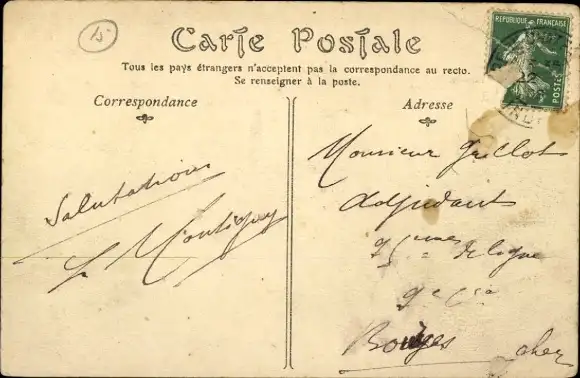 15
Carte Postale
Tous les pays étrangers n'acceptent pas la correspondance au recto.
Se renseigner à la poste.
REPUBLIQUE FRANÇAISE
POSTES
Correspondance
Adresse
Salutations
Montigny
Monsieur Grillot
Adjudant
de ligne
9e Cie
Bourges Cher